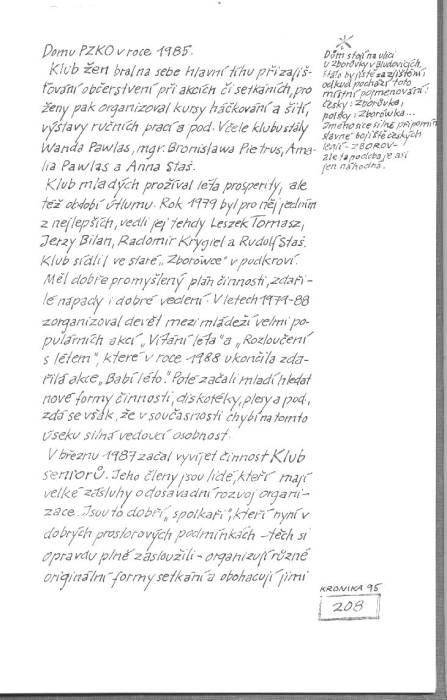 Domu PZKO v roce 1985.
Klub žen bral na sebe hlavní tíhu při zajiš-
ťování občerstvení při akcích či setkáních, pro
ženy pak organizoval kursy háčkování a šití,
výstavy ručních prací a pod. V čele klubu stály
Wanda Pawlas, mgr. Bronisława Pietrus, Ama-
lia Pawlas a Anna Staś.
Klub mladých prožíval léta prosperity, ale
též období útlumu. Rok 1979 byl pro něj jedním
z nejlepších, vedli jej tehdy Leszek Tomasz,
Jerzy Bilan, Radomir Krygiel a Rudolf Staś.
Klub sídlil ve staré „Zborówce“ v podkroví.
Měl dobře promyšlený plán činnosti, zdaři-
lé nápady i dobré vedení. V letech 1979-88
zorganizoval devět mezi mládeží velmi po-
pulárních akcí „Vítání léta“ a „Rozloučení
s létem“, které v roce 1988 ukončila zda-
řilá akce „Babí léto“. Poté začali mladí hledat
nové formy činnosti, diskotéky, plesy a pod.,
zdá se však, že v současnosti chybí na tomto
úseku silná vedoucí osobnost.
V březnu 1987 začal vyvíjet činnost Klub
seniorů. Jeho členy jsou lidé, kteří mají
velké zásluhy o dosavadní rozvoj organi-
zace. Jsou to dobří „spolkaři“, kteří nyní v
dobrých prostorových podmínkách - těch si
opravdu plně zasloužili - organizují různé
originální formy setkání a obohacují jimi
* Dům stojí na ulici
U Zborůvky v Bludovicích,
stálo by jistě za zjištění
odkud pochází toto
místní pojmenování:
česky: Zborůvka,
polsky: Zborówka...
Zní to sice silně připomíná
slavné bojiště českých
legií - ZBOROV -
ale ta podoba je asi
jen náhodná.
KRONIKA 95
208